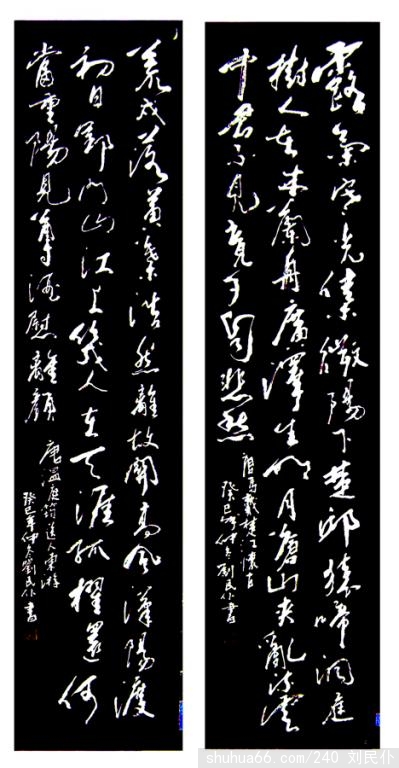 露氣寒光集微陽下楚邱猿啼洞庭
樹人在木蘭舟廣澤生明月蒼山夾亂流雲
中君不見竟夕自悲愁
唐馬戴楚江懷古
癸巳年仲冬劉民仆書
荒戍落黃葉浩然離故關高風漢陽渡
初日郢門山江上幾人在天涯孤櫂還何
當重陽見尊酒慰離顏
唐溫庭筠送人東游
癸巳年仲冬劉民仆書
shuhua66.com/240 刘民仆